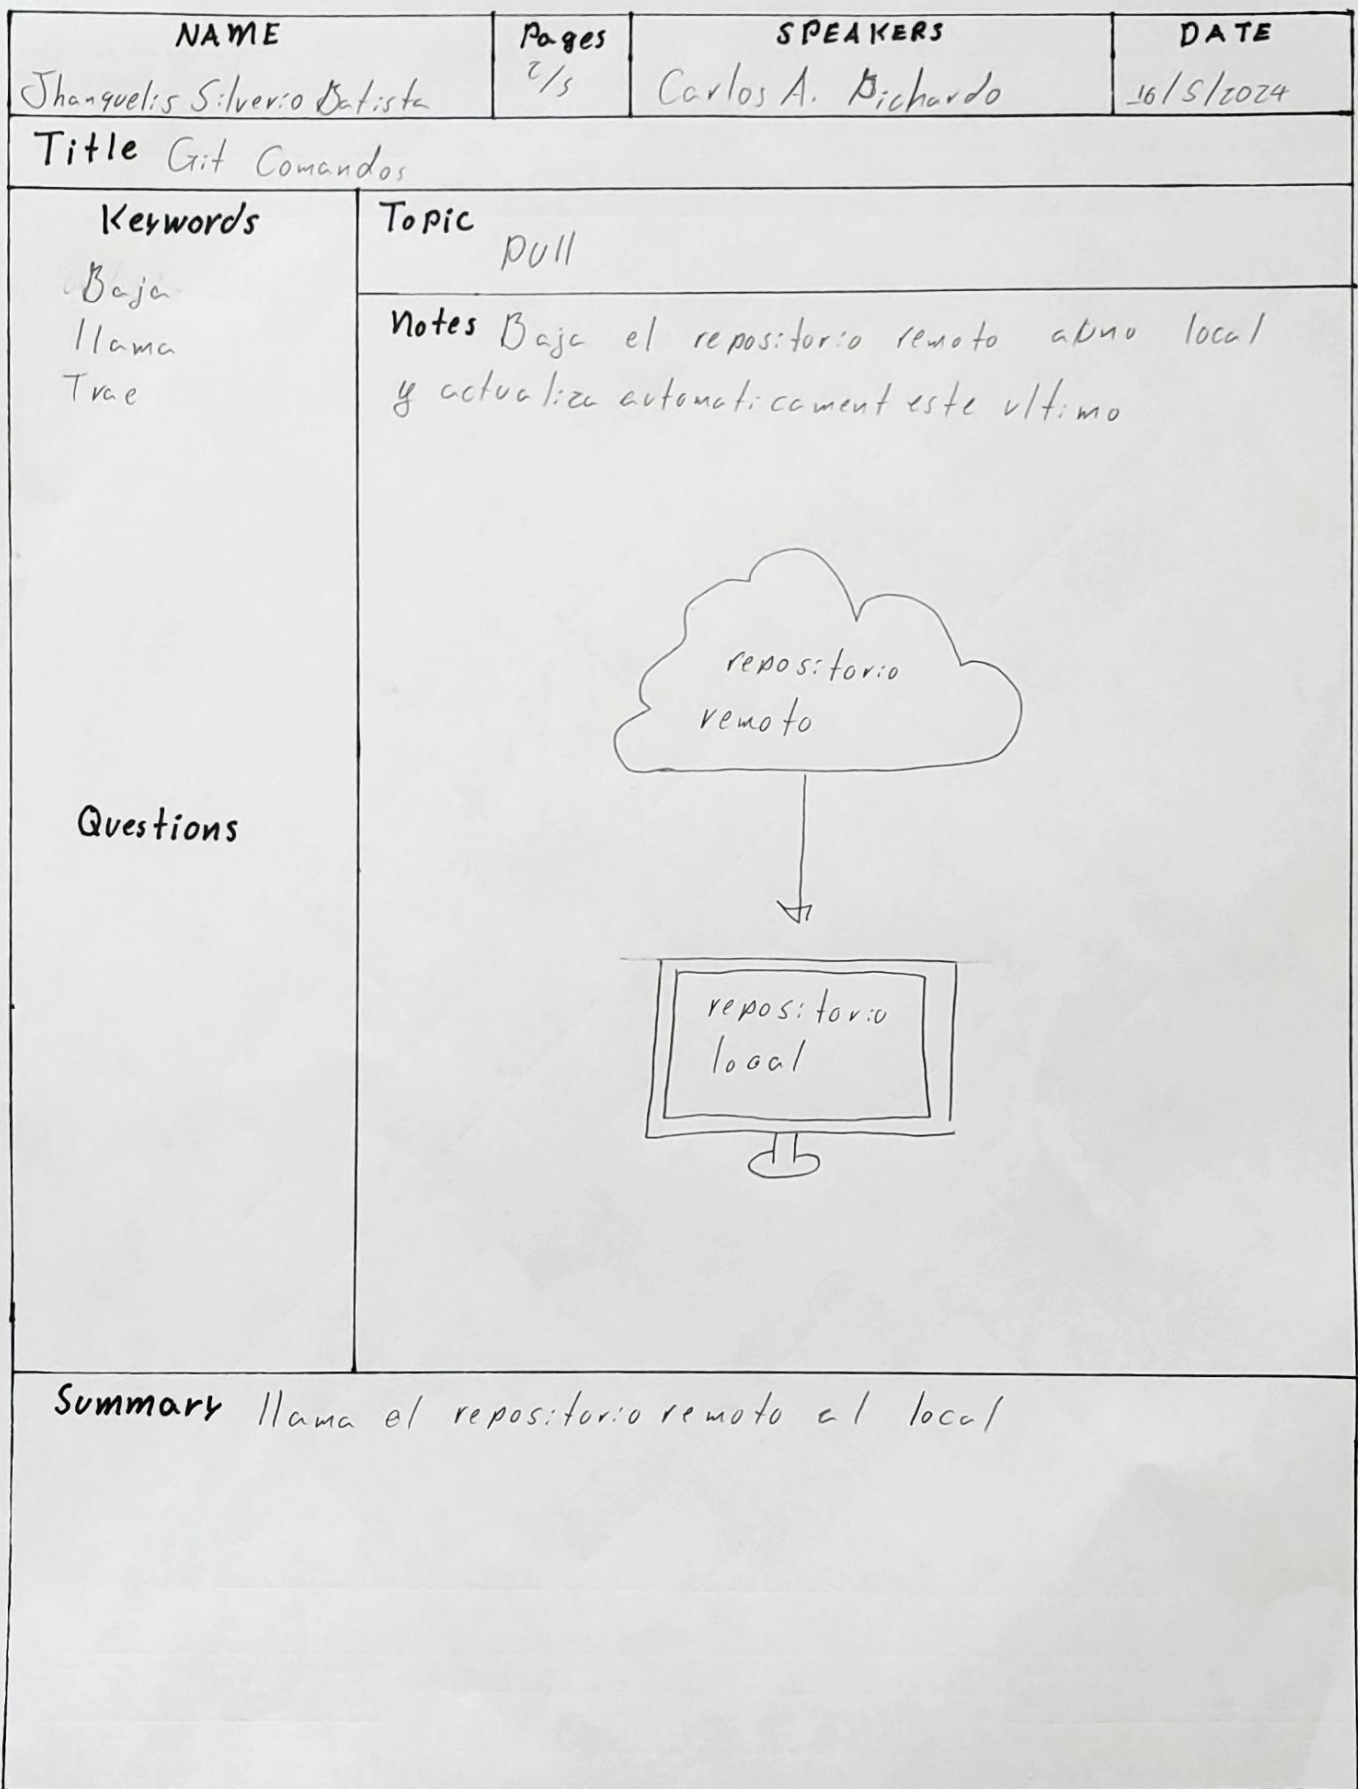 NAME
Jhanquelis Silverio Batista
Pages
2/5
SPEAKERS
Carlos A. Pichardo
DATE
16/5/2024
Title Git Comandos
Keywords
Baja
llama
Trae
Questions
Topic
pull
Notes Baja el repositorio remoto a uno local
y actualiza automaticament este ultimo
repositorio
remoto
repositorio
local
Summary llama el repositorio remoto al local